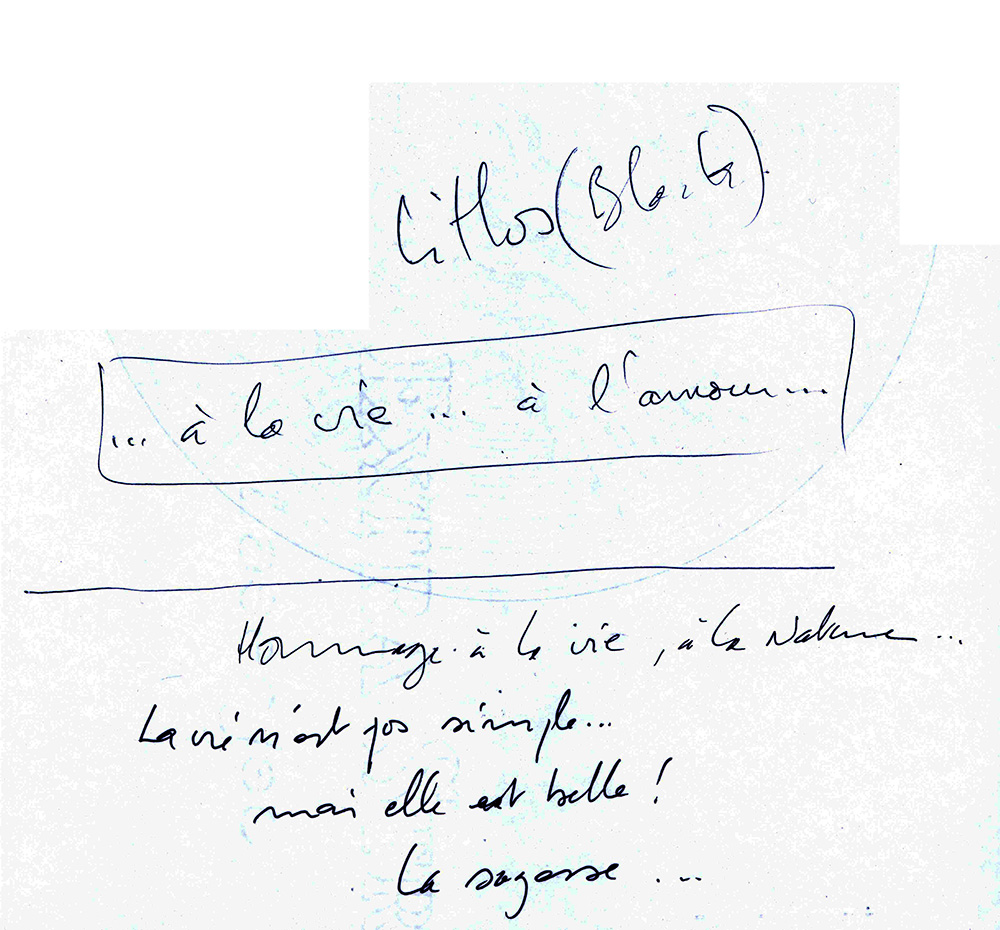 Lithos (Black)
... à la vie ... à l'amour...
Hommage à la vie, à la Nature ...
La vie n'est pas simple...
mais elle est belle !
La sagesse ...